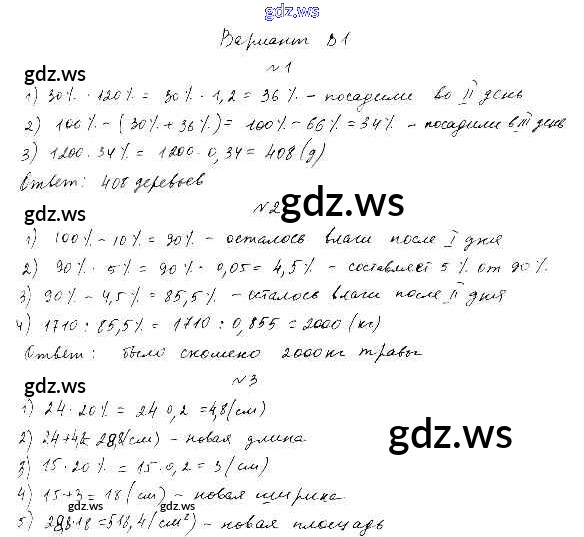 gdz.ws
Вариант В1
gdz.ws
№1
1) 30% · 120% = 30% · 1,2 = 36% - посадили во II день
2) 100% - (30% + 36%) = 100% - 66% = 34% - посадили в III день
3) 1200 · 34% = 1200 · 0,34 = 408 (д)
Ответ: 408 деревьев
gdz.ws
№2
gdz.ws
1) 100% - 10% = 90% - осталось влаги после I дня
2) 90% · 5% = 90% · 0,05 = 4,5% - составляет 5% от 90%
3) 90% - 4,5% = 85,5% - осталось влаги после II дня
4) 1710 : 85,5% = 1710 : 0,855 = 2000 (кг)
Ответ: было скошено 2000 кг травы
№3
gdz.ws
1) 24 · 20% = 24 · 0,2 = 4,8 (см)
2) 24 + 4,8 = 28,8 (см) - новая длина
gdz.ws
3) 15 · 20% = 15 · 0,2 = 3 (см)
4) 15 + 3 = 18 (см) - новая ширина
gdz.ws gdz.ws
5) 28,8 · 18 = 518,4 (см²) - новая площадь